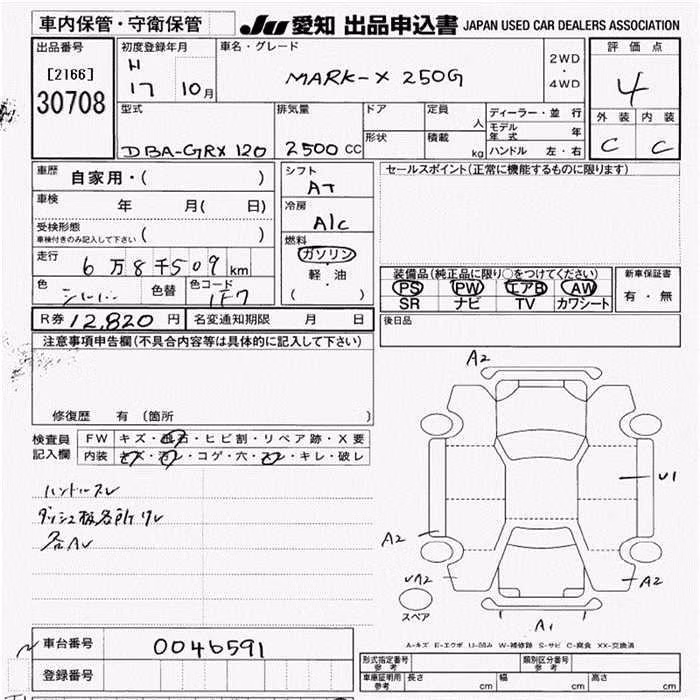 車内保管・守衛保管
JU 愛知 出品申込書 JAPAN USED CAR DEALERS ASSOCIATION
出品番号 初度登録年月 車名・グレード 2WD ・ 4WD 評価点
[2166] H 17 10月 MARK-X 250G 4
30708 型式 排気量 ドア 定員 人 ディーラー・並 行 外装 内装
モデル年式 年
DBA-GRX 120 2500 CC 形状 積載 kg ハンドル 左・右 C C
車歴 自家用・( ) シフト AT セールスポイント(正常に機能するものに限ります)
車検 年 月( 日) 冷房 A/C
受検形態
車検付きのみ記入して下さい
燃料 ガソリン・軽油 ( )
走行 6万8千509km
装備品(純正品に限り○をつけてください) 新車保証書
色 シルバー 色替 色コード 1F7 PS PW エアB AW 有・無
SR ナビ TV カワシート
R券 12,820円 名変通知期限 月 日 後日品
注意事項申告欄(不具合内容等は具体的に記入して下さい)
A2
修復歴 有 (箇所 )
検査員記入欄 FW キズ・飛石・ヒビ割・リペア跡・X要
内装 キズ・汚レ・コゲ・穴・スレ・キレ・破レ
ハンドルスレ
U1
ダッシュ板各所ワレ
各AU
A2
UA2 A2
スペア
A1
A-キズ E-エクボ U-凹み W-補修跡 S-サビ C-腐食 XX-交換済
車台番号 0046591
形式指定番号 参考 類別区分番号 参考
登録番号 車庫証明用 参考 長さ cm 幅 cm 高さ cm